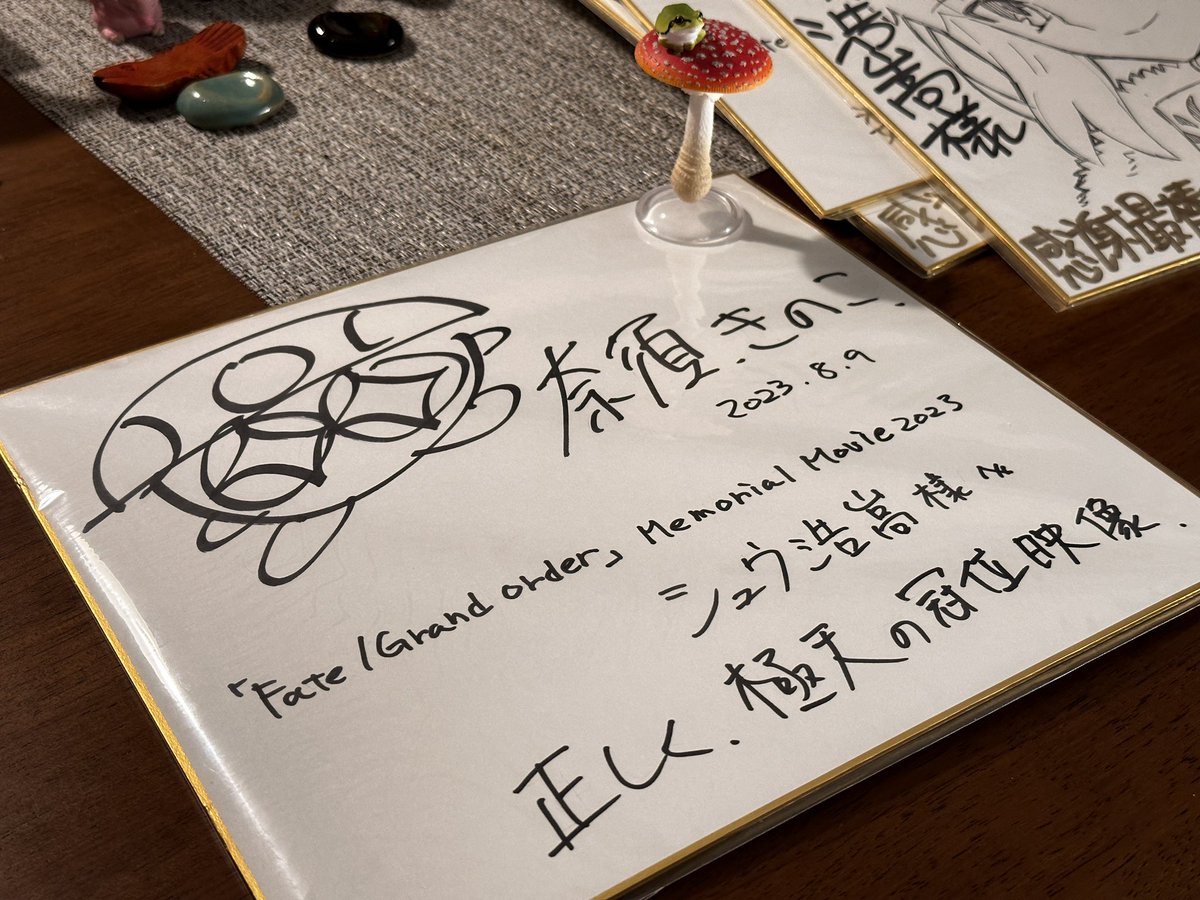 奈須きのこ.
2023.8.9
「Fate/Grand order」 Memorial Movie2023
シュウ浩嵩様へ
正しく、極天の冠位映像.
浩嵩様
感謝